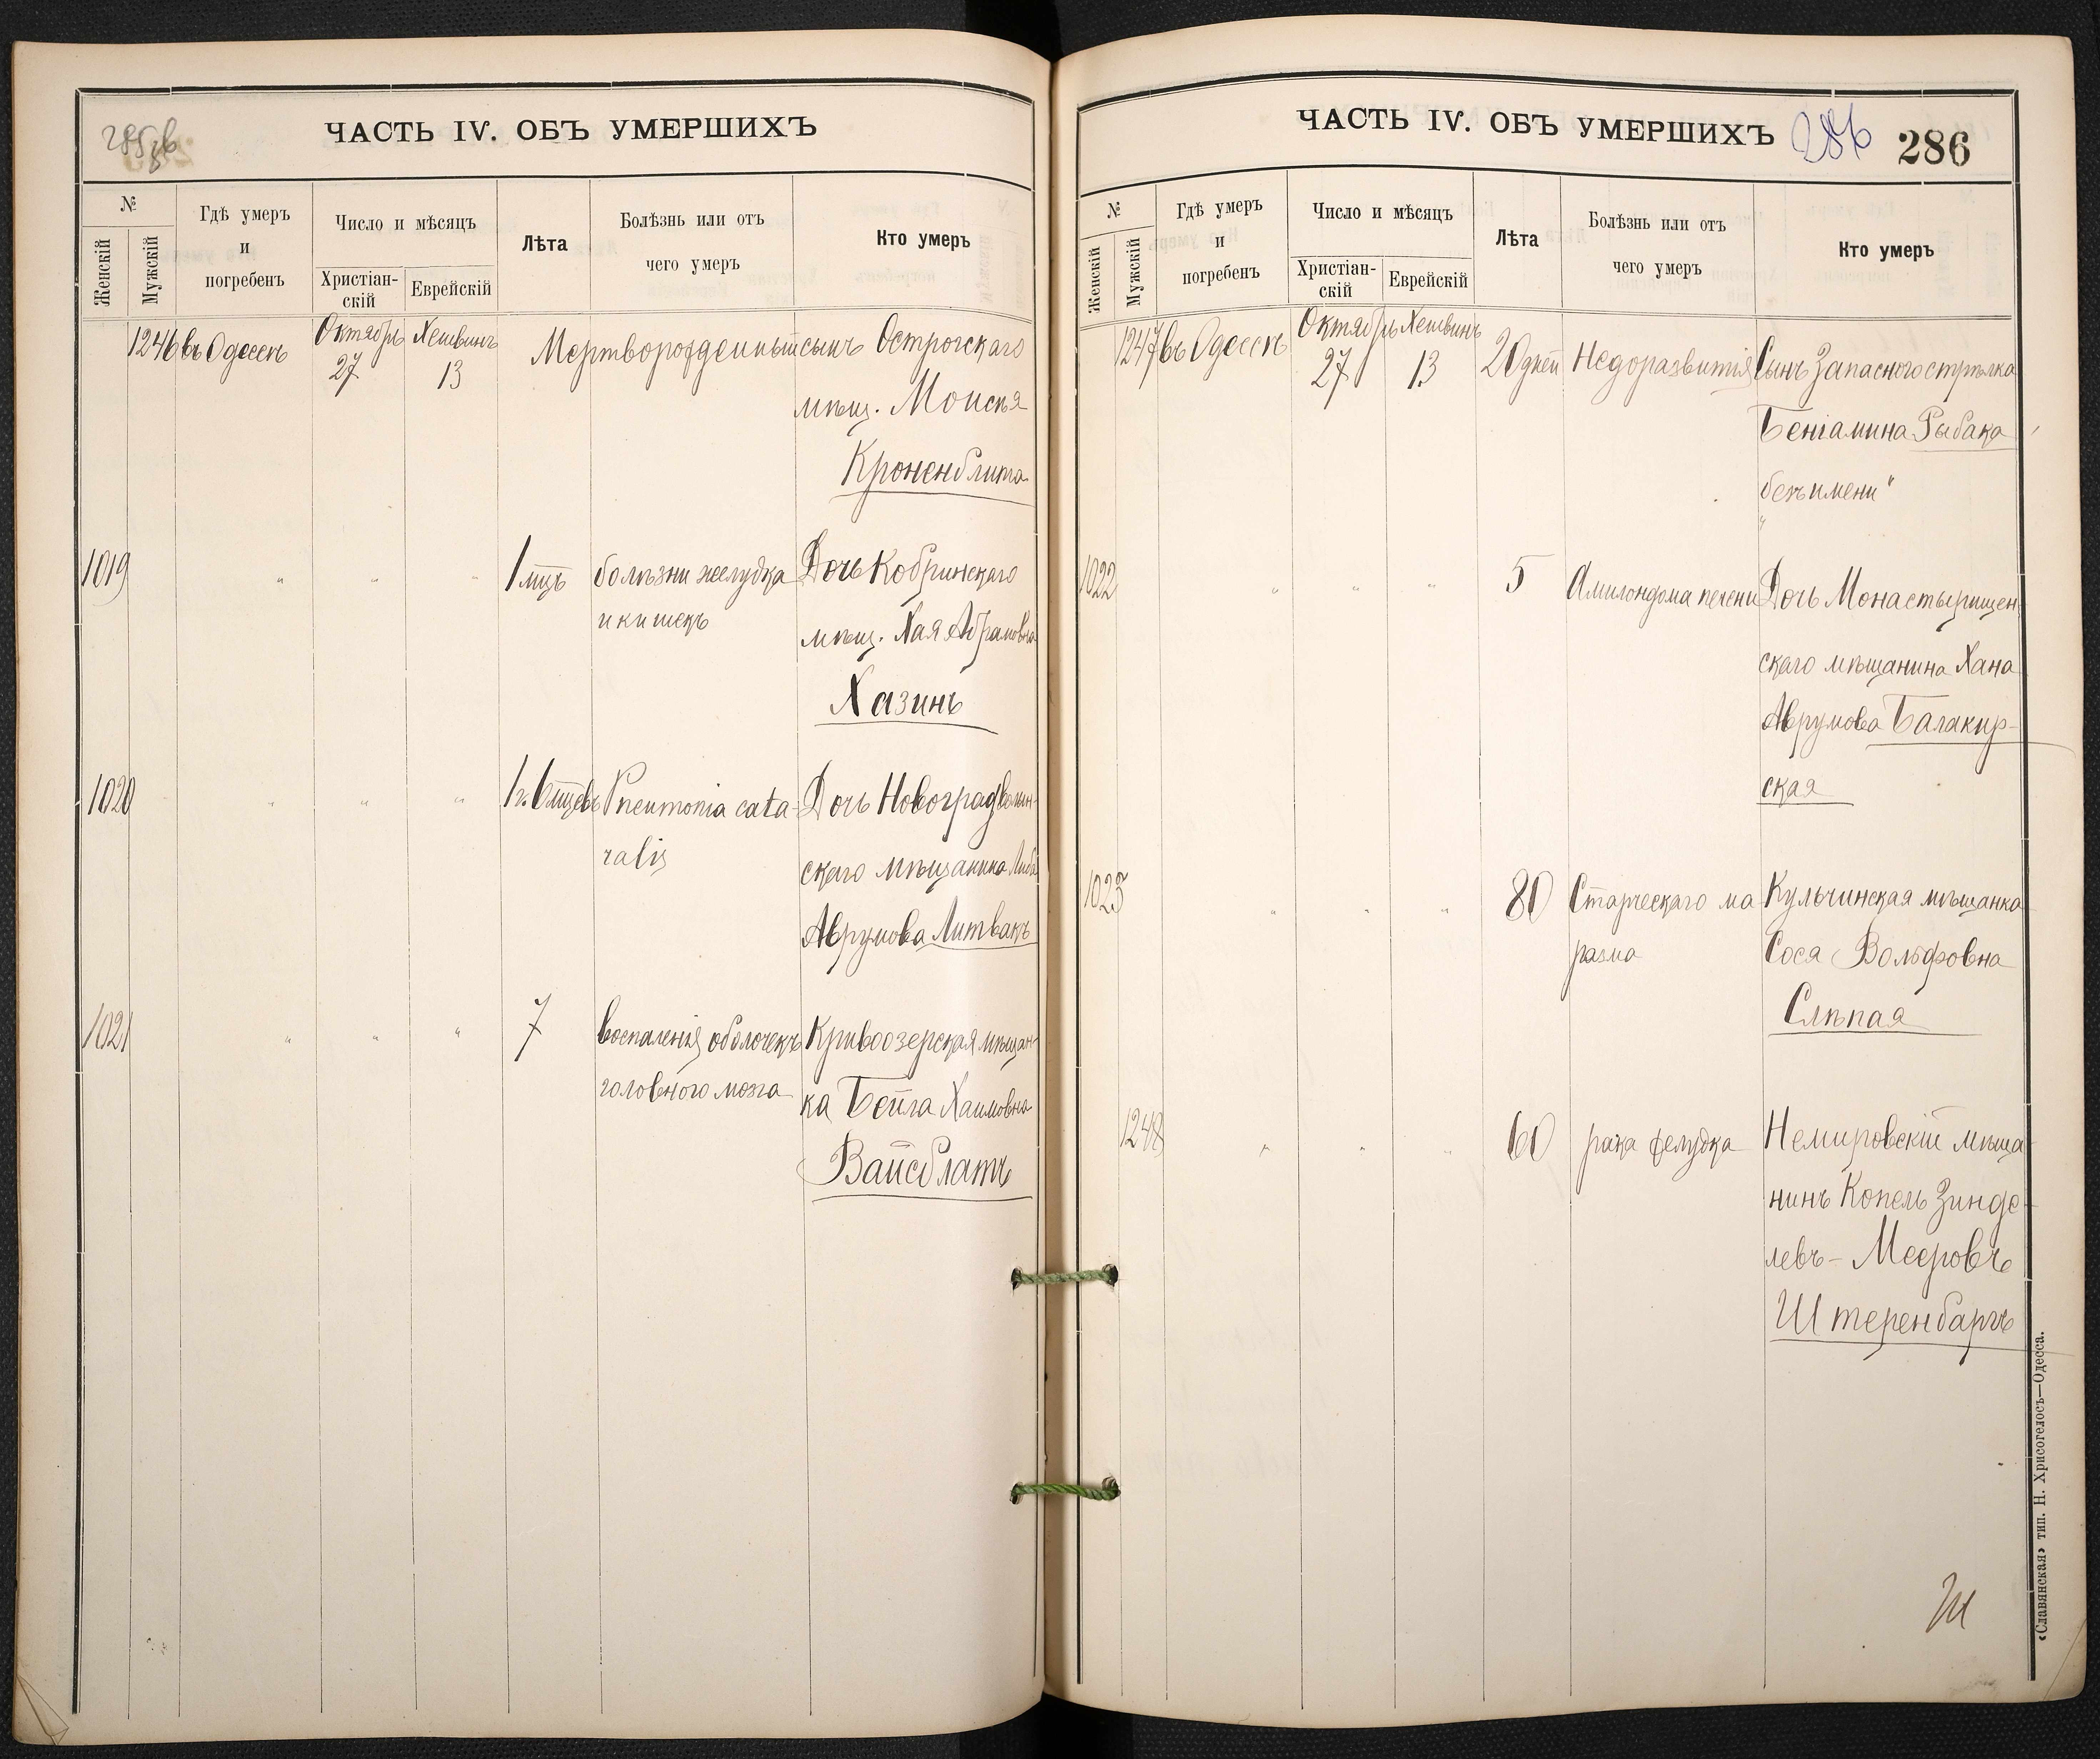 ЧАСТЬ IV. ОБЪ УМЕРШИХЪ
№
Женскій
Мужскій
Гдѣ умеръ
и
погребенъ
Число и мѣсяцъ
Христіан-
скій
Еврейскій
Лѣта
Болѣзнь или отъ
чего умеръ
Кто умеръ
1246 въ Одессѣ Октябрь Хешвинъ Мертворожденный сынъ Острогскаго
27 13
мѣщ. Моисѣя
Кроненблита
1019 " " " 1 мцъ болѣзни желудка Дочь Кобринскаго
и кишекъ
мѣщ. Хая Абрамовна
Хазинъ
1020 " " " 1 г. 6 мцевъ Pneumonia cata- Дочь Новоградволын-
ralis
скаго мѣщанина Либа
Аврумова Литвакъ
1021 " " " 7 воспаленія оболочекъ Кривоозерская мѣщан-
головного мозга
ка Бейла Хаимовна
Вайсблатъ
ЧАСТЬ IV. ОБЪ УМЕРШИХЪ 286 286
№
Женскій
Мужскій
Гдѣ умеръ
и
погребенъ
Число и мѣсяцъ
Христіан-
скій
Еврейскій
Лѣта
Болѣзнь или отъ
чего умеръ
Кто умеръ
1247 въ Одессѣ Октябрь Хешвинъ 20 дней Недоразвитія Сынъ Запасного стрѣлка
27 13
Беніамина Рыбака
безъ имени "
"
1022 " " " 5 Амилоидома печени Дочь Монастырищен-
скаго мѣщанина Хана
Аврумова Балакир-
ская
1023 " " " 80 Старческаго ма- Кульчинская мѣщанка
разма
Сося Вольфовна
Слѣпая
1248 " " " 60 рака желудка Немировскій мѣща-
нинъ Копель Зинде-
левъ - Мееровъ
Штеренбаргъ
«Славянская» тип. Н. Хрисогелосъ—Одесса.